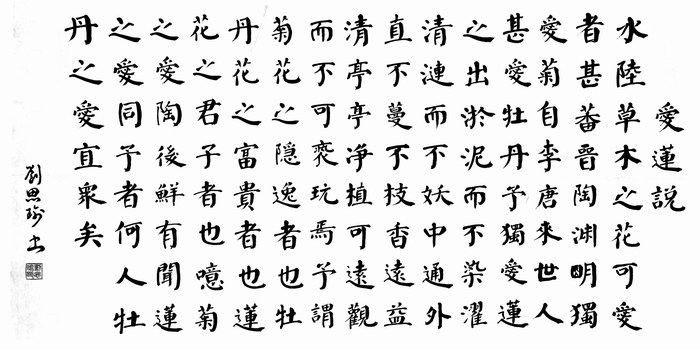 愛蓮說
水陸草木之花可愛
者甚蕃晉陶渊明獨
愛菊自李唐來世人
甚愛牡丹予獨愛蓮
之出淤泥而不染濯
清漣而不妖中通外
直不蔓不枝香遠益
清亭亭净植可遠觀
而不可亵玩焉予謂
菊花之隐逸者也牡
丹花之富貴者也蓮
花之君子者也噫菊
之愛陶後鮮有聞蓮
之愛同予者何人牡
丹之愛宜衆矣
劉思瑜书